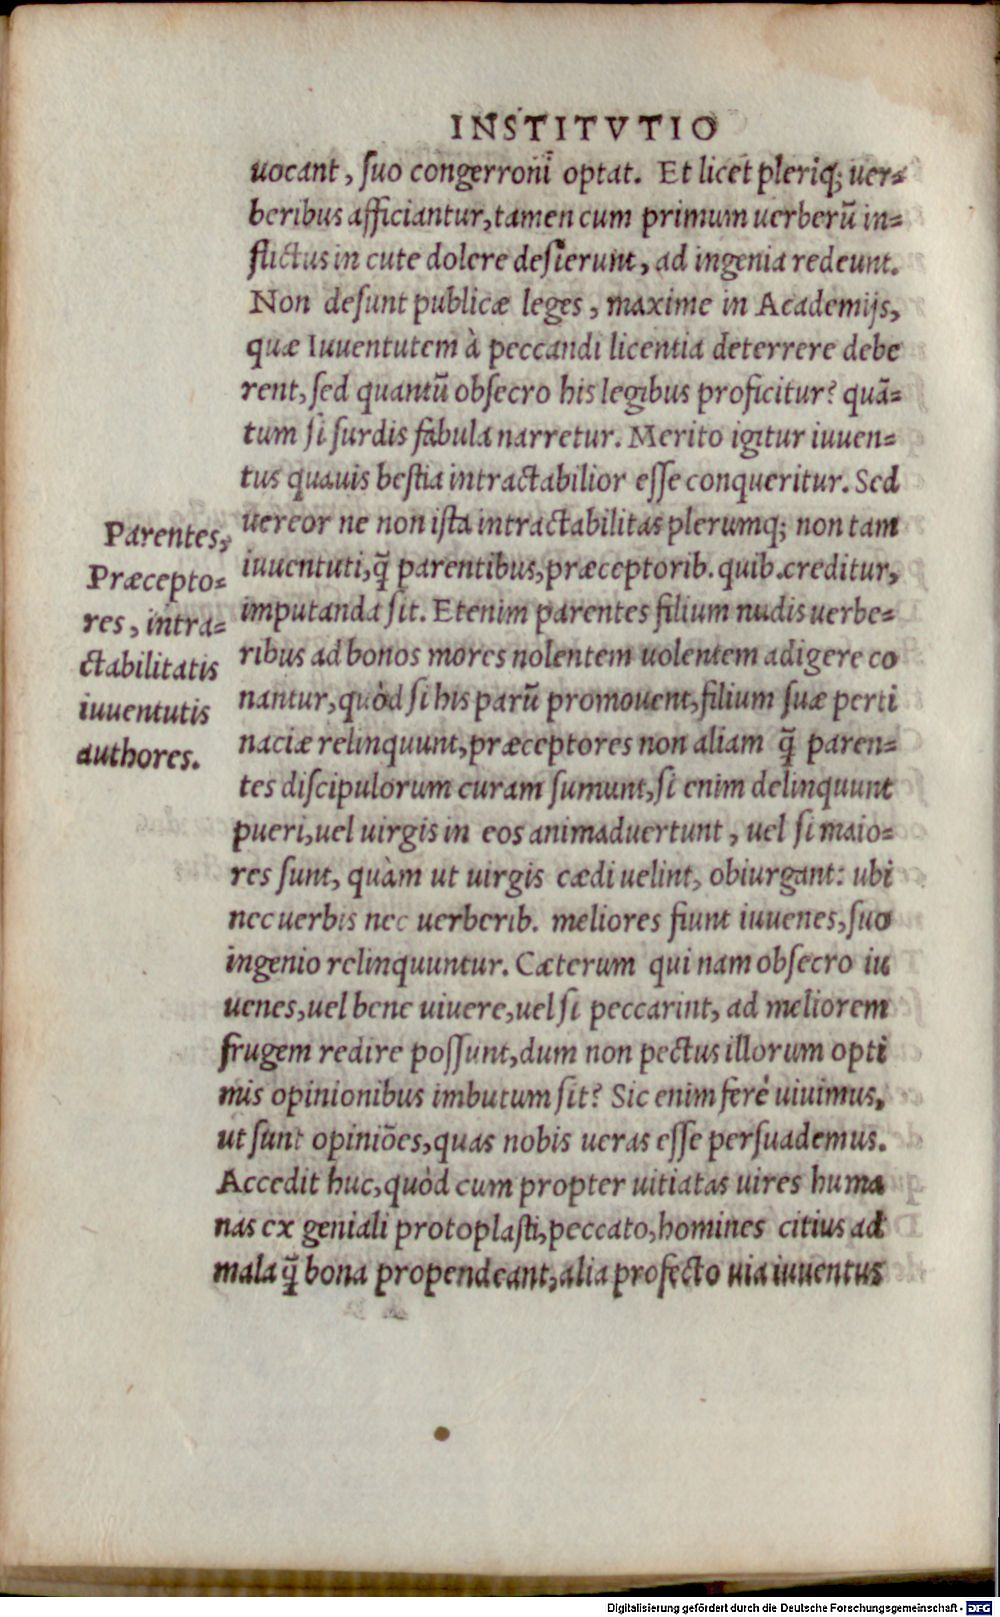 INSTITVTIO
uocant, ſuo congerroni optat. Et licet pleriq; uer-
beribus afficiantur, tamen cum primum uerberũ in-
flictus in cute dolere deſierunt, ad ingenia redeunt.
Non deſunt publicæ leges, maxime in Academijs,
quæ Iuuentutem à peccandi licentia deterrere debe
rent, ſed quantũ obſecro his legibus proficitur? quã-
tum ſi ſurdis fabula narretur. Merito igitur iuuen-
tus quauis beſtia intractabilior eſſe conqueritur. Sed
uereor ne non iſta intractabilitas plerumq; non tam
iuuentuti, q̃ parentibus, præceptorib. quib. creditur,
imputanda ſit. Etenim parentes filium nudis uerbe-
ribus ad bonos mores nolentem uolentem adigere co
nantur, quòd ſi his parũ promouent, filium ſuæ perti
naciæ relinquunt, præceptores non aliam q̃ paren-
tes diſcipulorum curam ſumunt, ſi enim delinquunt
pueri, uel uirgis in eos animaduertunt, uel ſi maio-
res ſunt, quàm ut uirgis cædi uelint, obiurgant: ubi
nec uerbis nec uerberib. meliores fiunt iuuenes, ſuo
ingenio relinquuntur. Cæterum qui nam obſecro iu
uenes, uel bene uiuere, uel ſi peccarint, ad meliorem
frugem redire poſſunt, dum non pectus illorum opti
mis opinionibus imbutum ſit? Sic enim ferè uiuimus,
ut ſunt opiniões, quas nobis ueras eſſe perſuademus.
Accedit huc, quòd cum propter uitiatas uires huma
nas ex geniali protoplaſti, peccato, homines citius ad
mala q̃ bona propendeant, alia profecto uia iuuentus
Parentes,
Præcepto-
res, intra-
ctabilitatis
iuuentutis
authores.
Digitalisierung gefördert durch die Deutsche Forschungsgemeinschaft - DFG